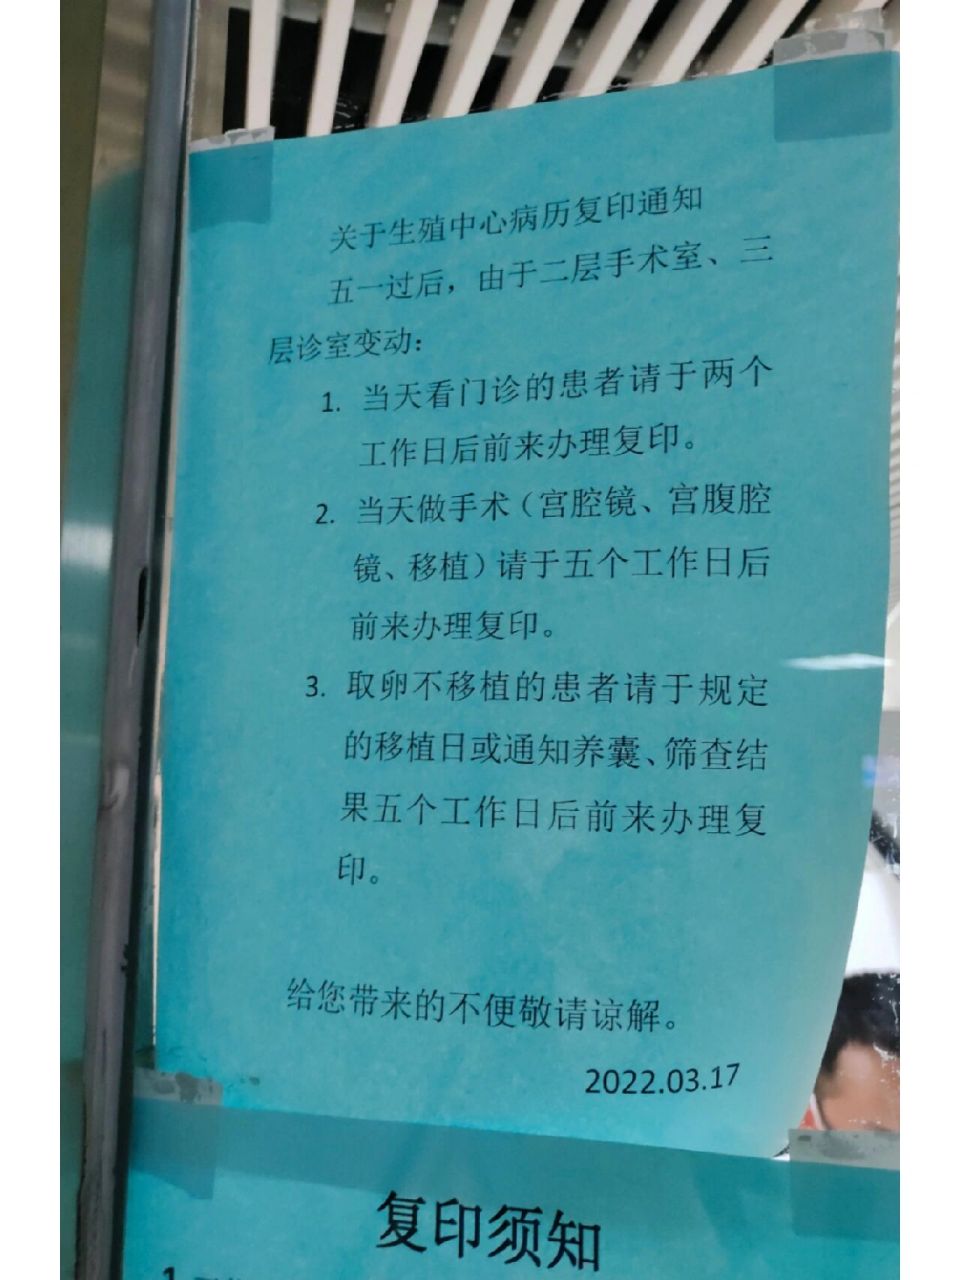 关于生殖中心病历复印通知
五一过后，由于二层手术室、三
层诊室变动：
1. 当天看门诊的患者请于两个
工作日后前来办理复印。
2. 当天做手术（宫腔镜、宫腹腔
镜、移植）请于五个工作日后
前来办理复印。
3. 取卵不移植的患者请于规定
的移植日或通知养囊、筛查结
果五个工作日后前来办理复
印。
给您带来的不便敬请谅解。
2022.03.17
复印须知
1